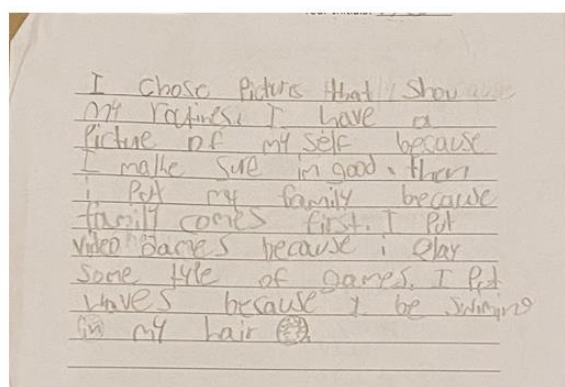 I chose Pictures that show
my routines. I have a
Picture of my self because
I make sure im good. then
i Put my family because
family comes first. I Put
video Games because i play
some type of games. I Put
waves because i be swiming
in my hair